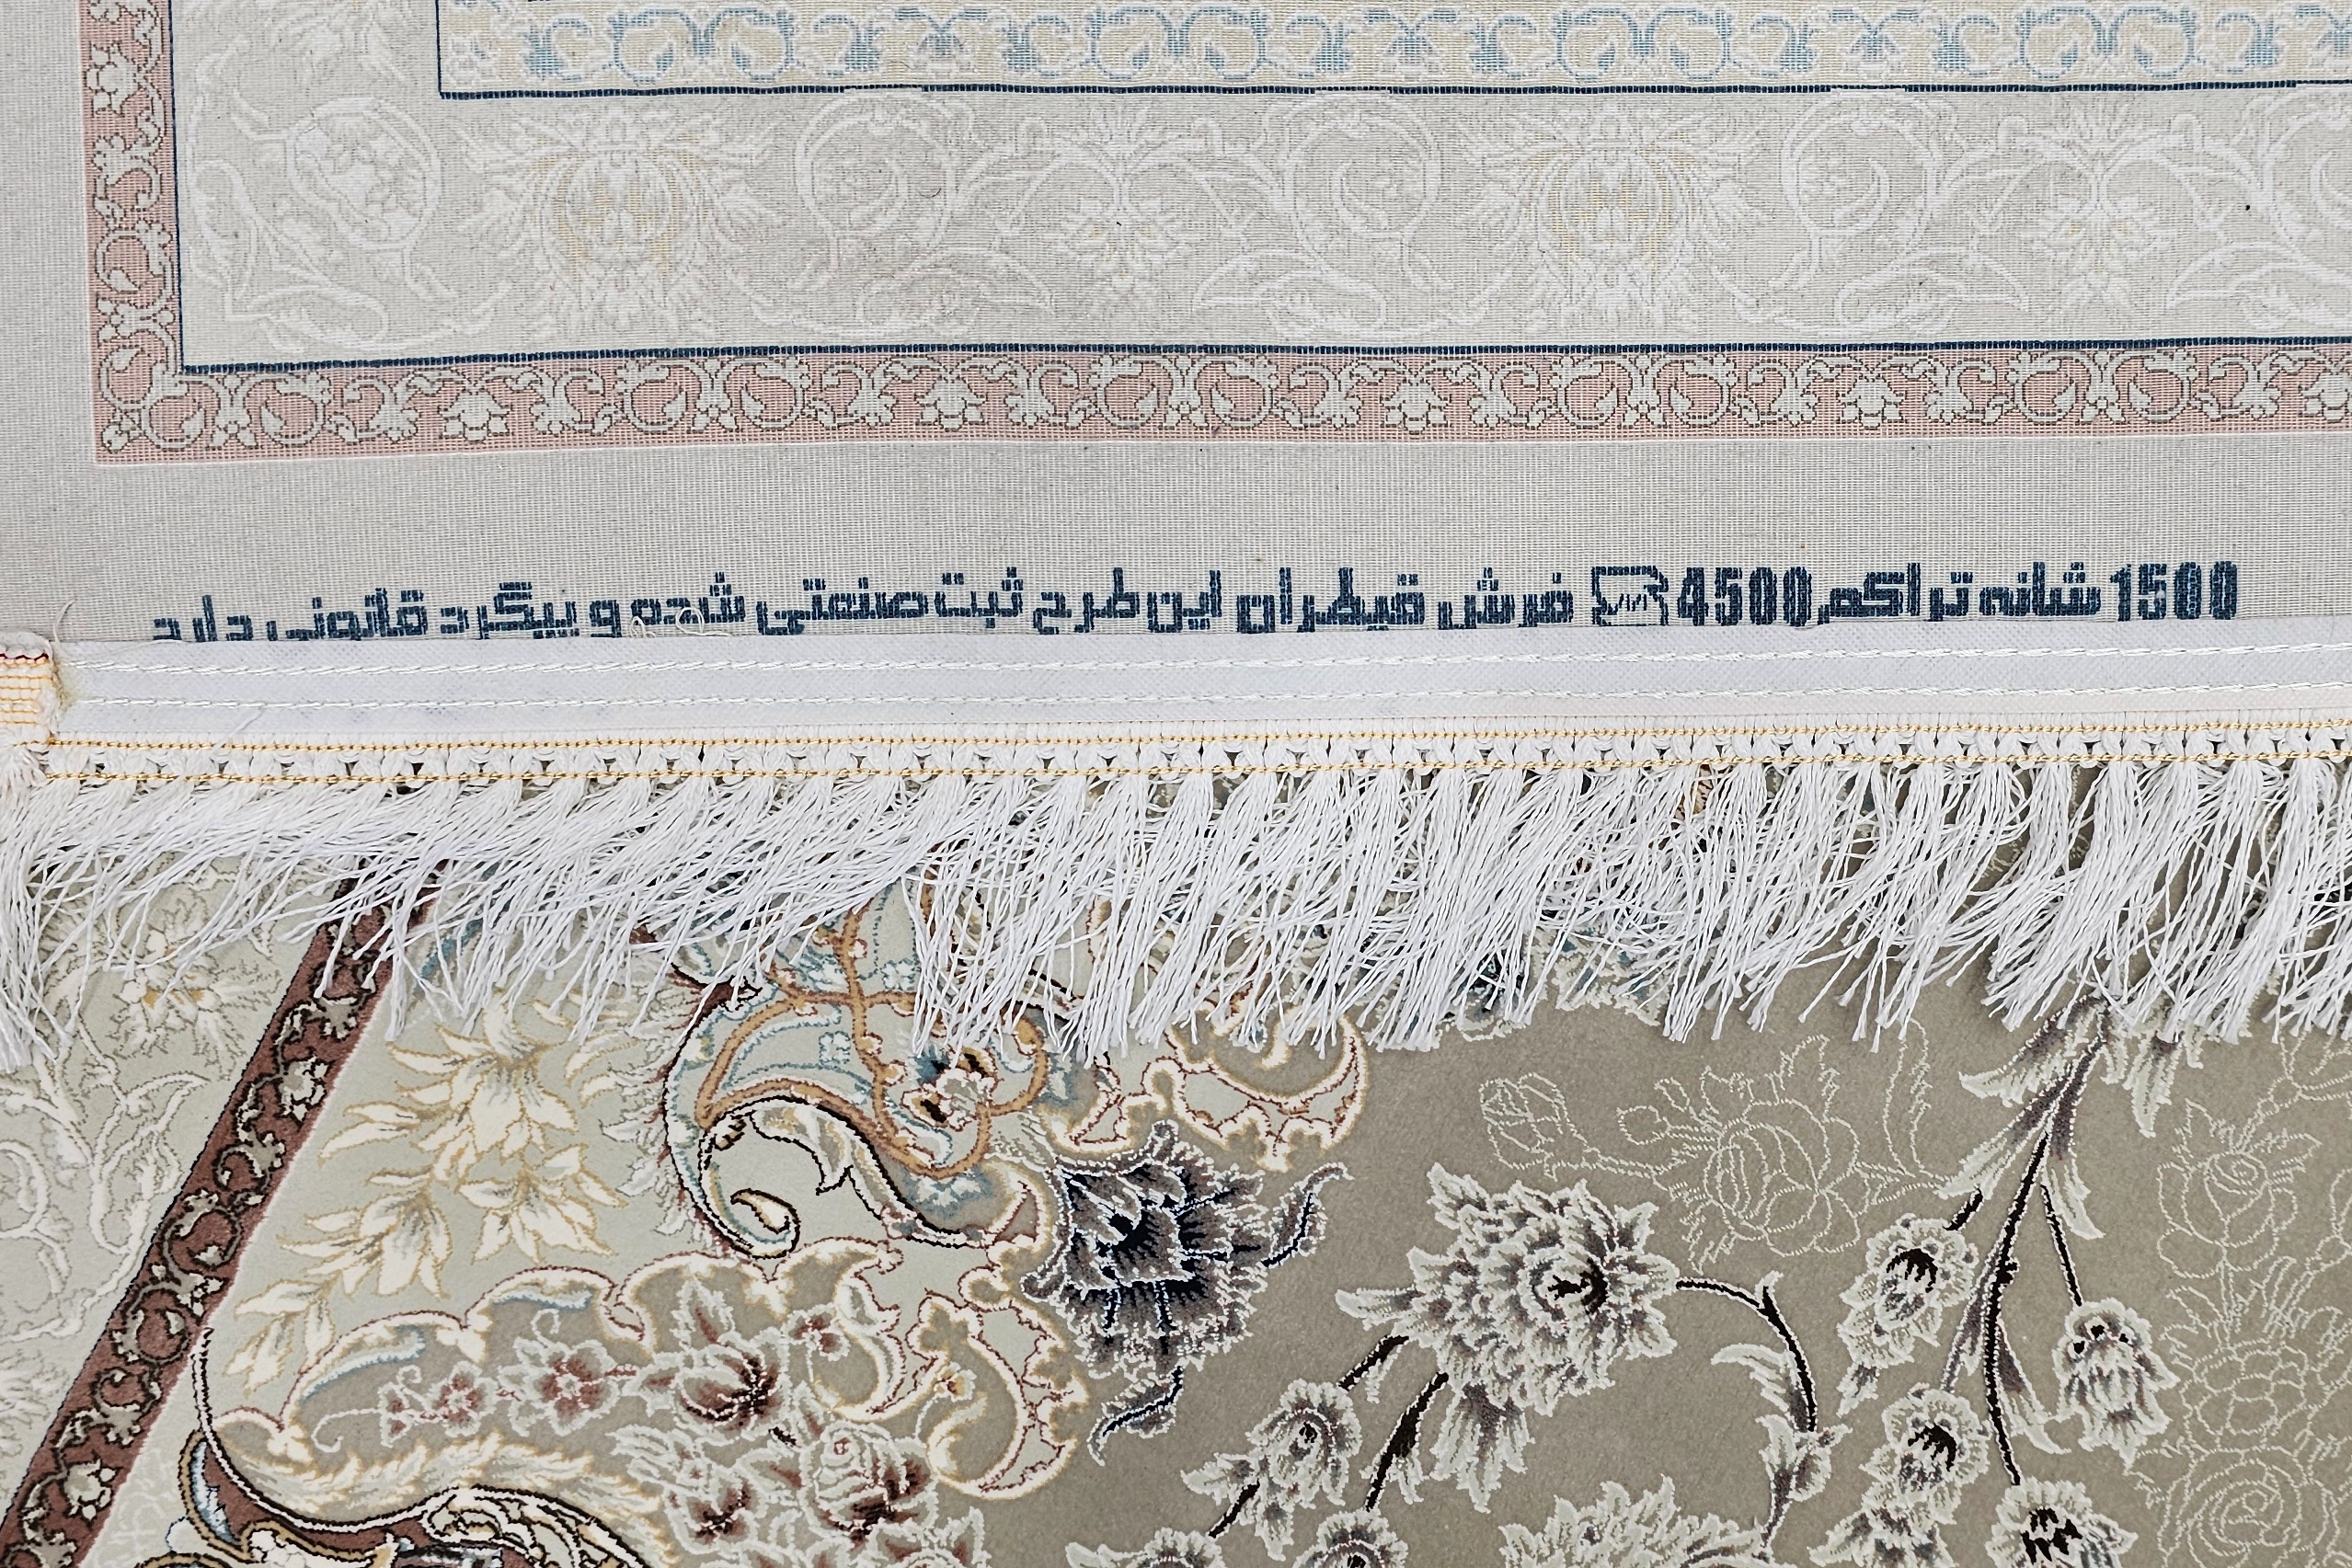 1500 شانه تراکم 4500 فرش قیطران این طرح ثبت صنعتی شده و پیگرد قانونی دارد